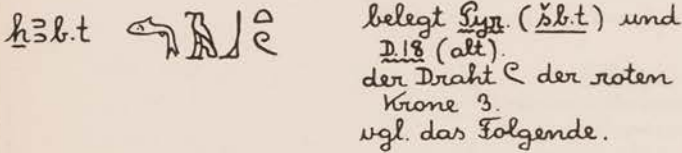 ẖꜣb.t 𓄡𓄿𓃀𓏏𓏲 belegt Pyr. (šb.t) und
D.18 (alt).
der Draht 𓏲 der roten
Krone 3.
vgl. das Folgende.